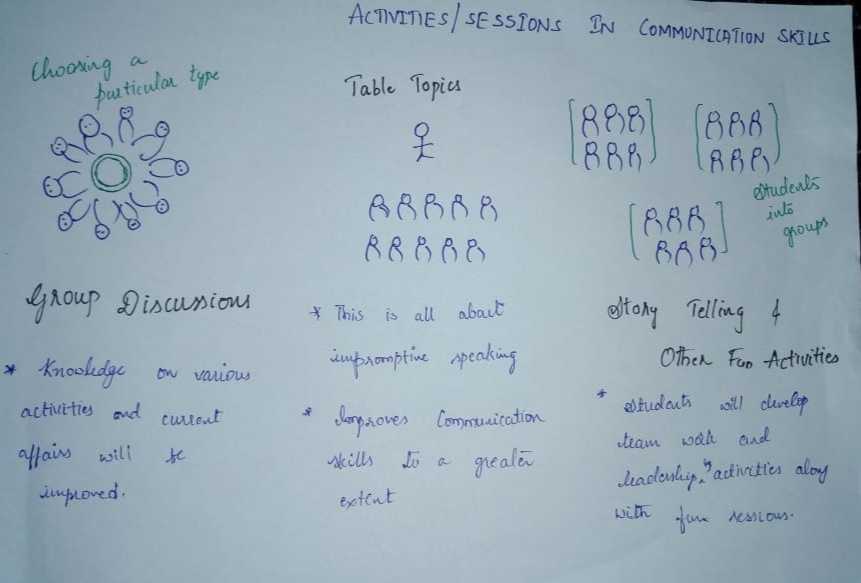 ACTIVITIES/SESSIONS IN COMMUNICATION SKILLS
Choosing a
particular type
Group Discussions
* Knowledge on various
activities and current
affairs will be
improved.
Table Topics
* This is all about
impromptive speaking
* Improves Communication
skills to a greater
extent
Students
into
groups
Story Telling &
Other Fun Activities
* Students will develop
team work and
leadership activities along
with fun sessions.